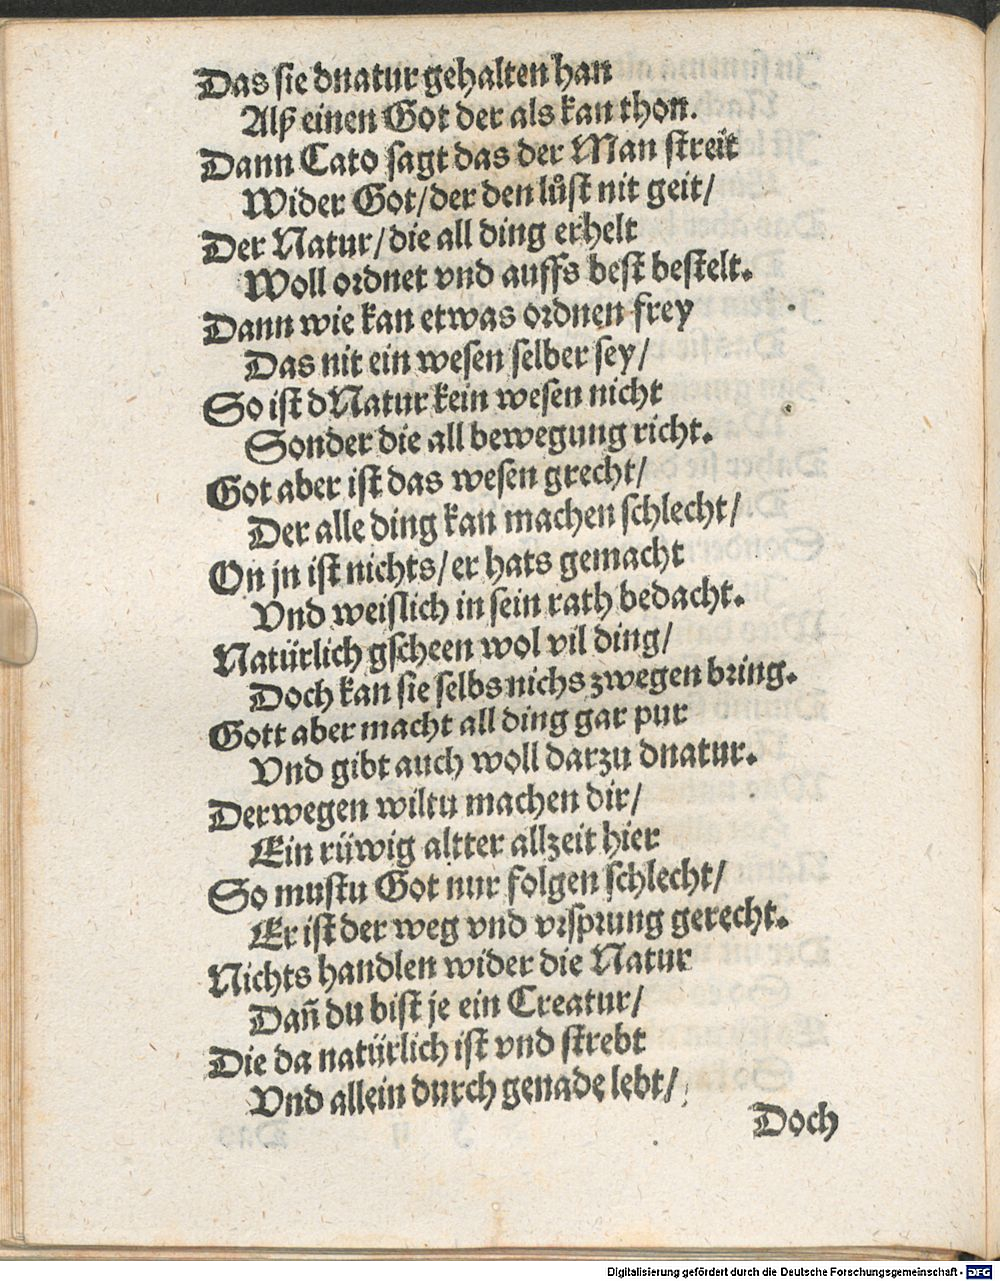 Das sie dnatur gehalten han
Alß einen Got der als kan thon.
Dann Cato sagt das der Man streit
Wider Got/der den lůst nit geit/
Der Natur/die all ding erhelt
Woll ordnet vnd auffs best bestelt.
Dann wie kan etwas ordnen frey
Das nit ein wesen selber sey/
So ist dNatur kein wesen nicht
Sonder die all bewegung richt.
Got aber ist das wesen grecht/
Der alle ding kan machen schlecht/
On jn ist nichts/er hats gemacht
Vnd weislich in sein rath bedacht.
Natürlich gscheen wol vil ding/
Doch kan sie selbs nichs zwegen bring.
Gott aber macht all ding gar pur
Vnd gibt auch woll darzu dnatur.
Derwegen wiltu machen dir/
Ein rüwig altter allzeit hier
So mustu Got nur folgen schlecht/
Er ist der weg vnd vrsprung gerecht.
Nichts handlen wider die Natur
Dañ du bist je ein Creatur/
Die da natürlich ist vnd strebt
Vnd allein durch genade lebt/
Doch
Digitalisierung gefördert durch die Deutsche Forschungsgemeinschaft - DFG